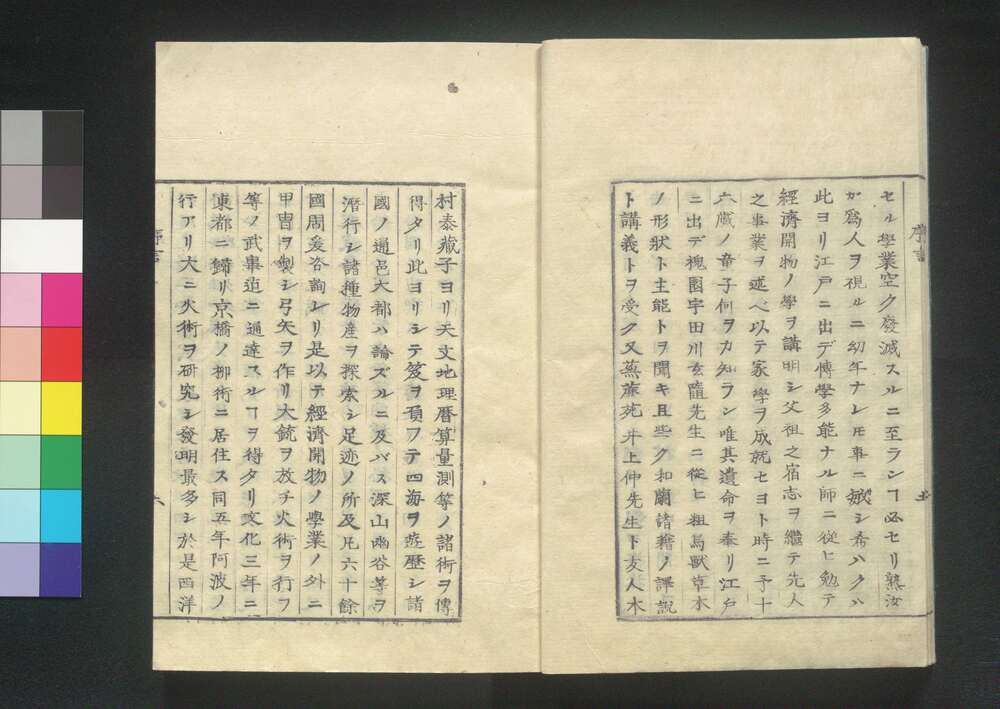 序言
セル學業空ク廢滅スルニ至ランヿ必セリ熟汝
ガ爲人ヲ視ルニ幼年ナレモ事ニ敏シ希ハクハ
此ヨリ江戸ニ出デ博學多能ナル師ニ從ヒ勉テ
經濟開物ノ學ヲ講明シ父祖之宿志ヲ繼テ先人
之事業ヲ述ベ以テ家學ヲ成就セヨト時ニ予十
六歳ノ童子何ヲカ知ラン唯其遺命ヲ奉リ江戸
ニ出デ槐園宇田川玄隨先生ニ從ヒ粗鳥獸草木
ノ形狀ト主能トヲ聞キ且些ク和蘭諸籍ノ譯説
ト講義トヲ受ク又蕉蔗苑井上仲先生ト友人木
村泰藏子ヨリ天文地理暦算量測等ノ諸術ヲ傳
得タリ此ヨリシテ笈ヲ負フテ四海ヲ遊歴シ諸
國ノ通邑大都ハ論ズルニ及バス深山幽谷等ヲ
潛行シ諸種物産ヲ探索シ足迹ノ所及凡六十餘
國周爰咨詢シリ是以テ經濟開物ノ學業ノ外ニ
甲冑ヲ製シ弓矢ヲ作リ大銃ヲ放チ火術ヲ行フ
等ノ武事迄ニ通達スルヿヲ得タリ文化三年ニ
東都ニ歸リ京橋ノ柳街ニ居住ス同五年阿波ノ
行アリ大ニ火術ヲ研究シ發明最多シ於是西洋
序言
六